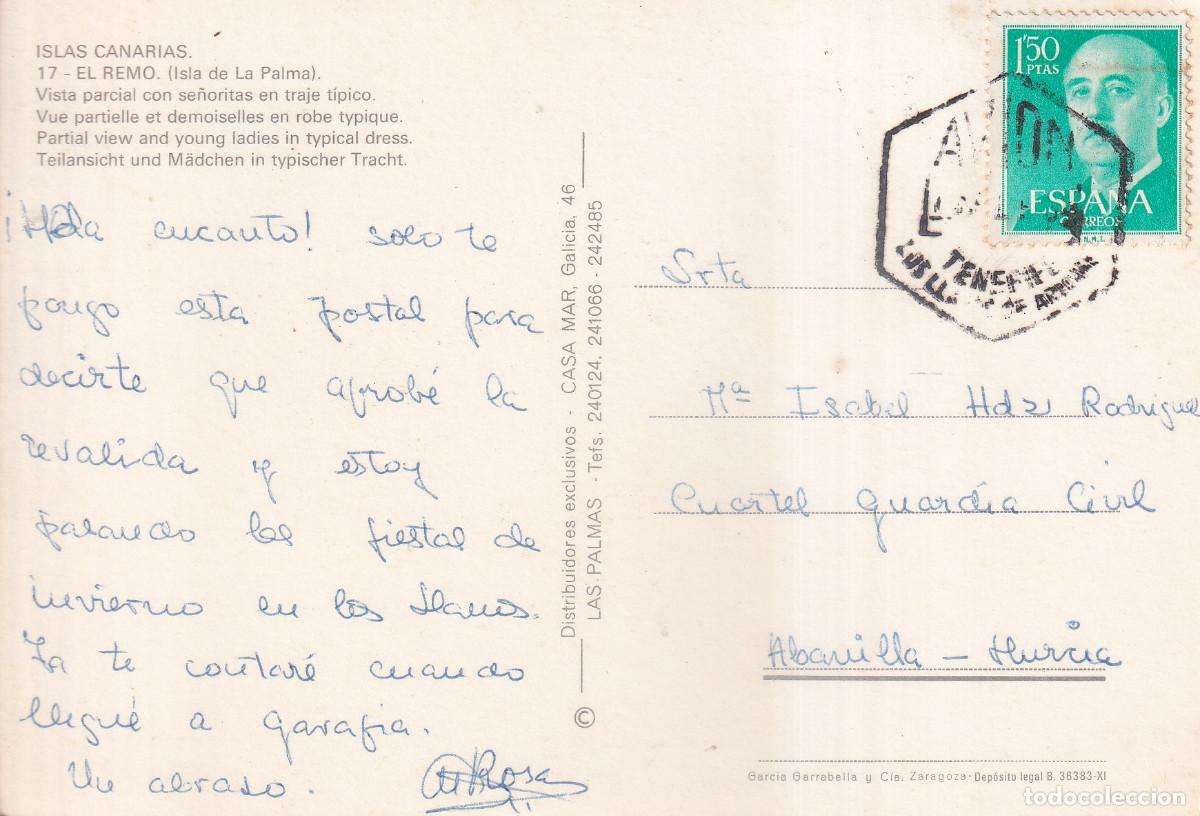 ISLAS CANARIAS.
17 - EL REMO. (Isla de La Palma).
Vista parcial con señoritas en traje típico.
Vue partielle et demoiselles en robe typique.
Partial view and young ladies in typical dress.
Teilansicht und Mädchen in typischer Tracht.
¡Hola encanto! solo te
pongo esta postal para
decirte que aprobé la
revalida y estoy
pasando las fiestas de
invierno en los Llanos.
Ya te contaré cuando
llegué a garafia.
Un abraso.
Mª Rosa
Distribuidores exclusivos - CASA MAR, Galicia, 46
LAS PALMAS - Tefs. 240124. 241066 - 242485
©
1'50
PTAS
ESPAÑA
CORREOS
F.N.M.T.
AVION
TENERIFE
LOS LLANOS DE ARIDANE
Srta
Mª Isabel Hdz Rodriguez
Cuartel Guardia Civil
Abanilla - Murcia
García Garrabella y Cía. Zaragoza · Depósito legal B. 36383-XI
todocoleccion